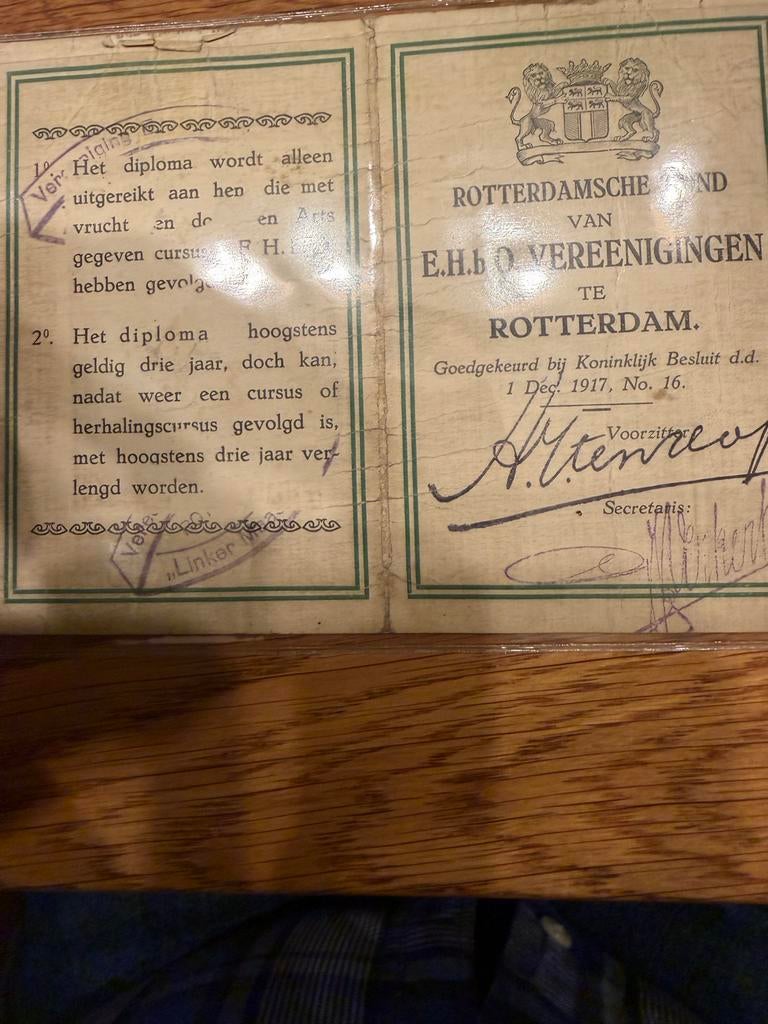 1⁰. Het diploma wordt alleen
uitgereikt aan hen die met
vrucht en en Arts
gegeven cursus
hebben
2⁰. Het diploma hoogstens
geldig drie jaar, doch kan,
nadat weer een cursus of
herhalingscursus gevolgd is,
met hoogstens drie jaar ver-
lengd worden.
"Linker
ROTTERDAMSCHE
VAN
E.H.b.O. VEREENIGINGEN
TE
ROTTERDAM.
Goedgekeurd bij Koninklijk Besluit d.d.
1 Dec. 1917, No. 16.
Voorzitter
Secretaris: